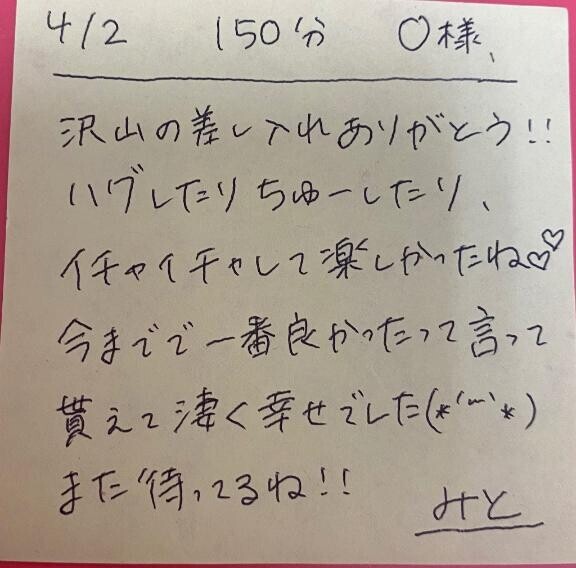 4/2 150分 ○様、
沢山の差し入れありがとう!!
ハグしたりちゅーしたり、
イチャイチャして楽しかったね♡♡
今までで一番良かったって言って
貰えて凄く幸せでした(*´﹃`*)
また待ってるね!!
みと